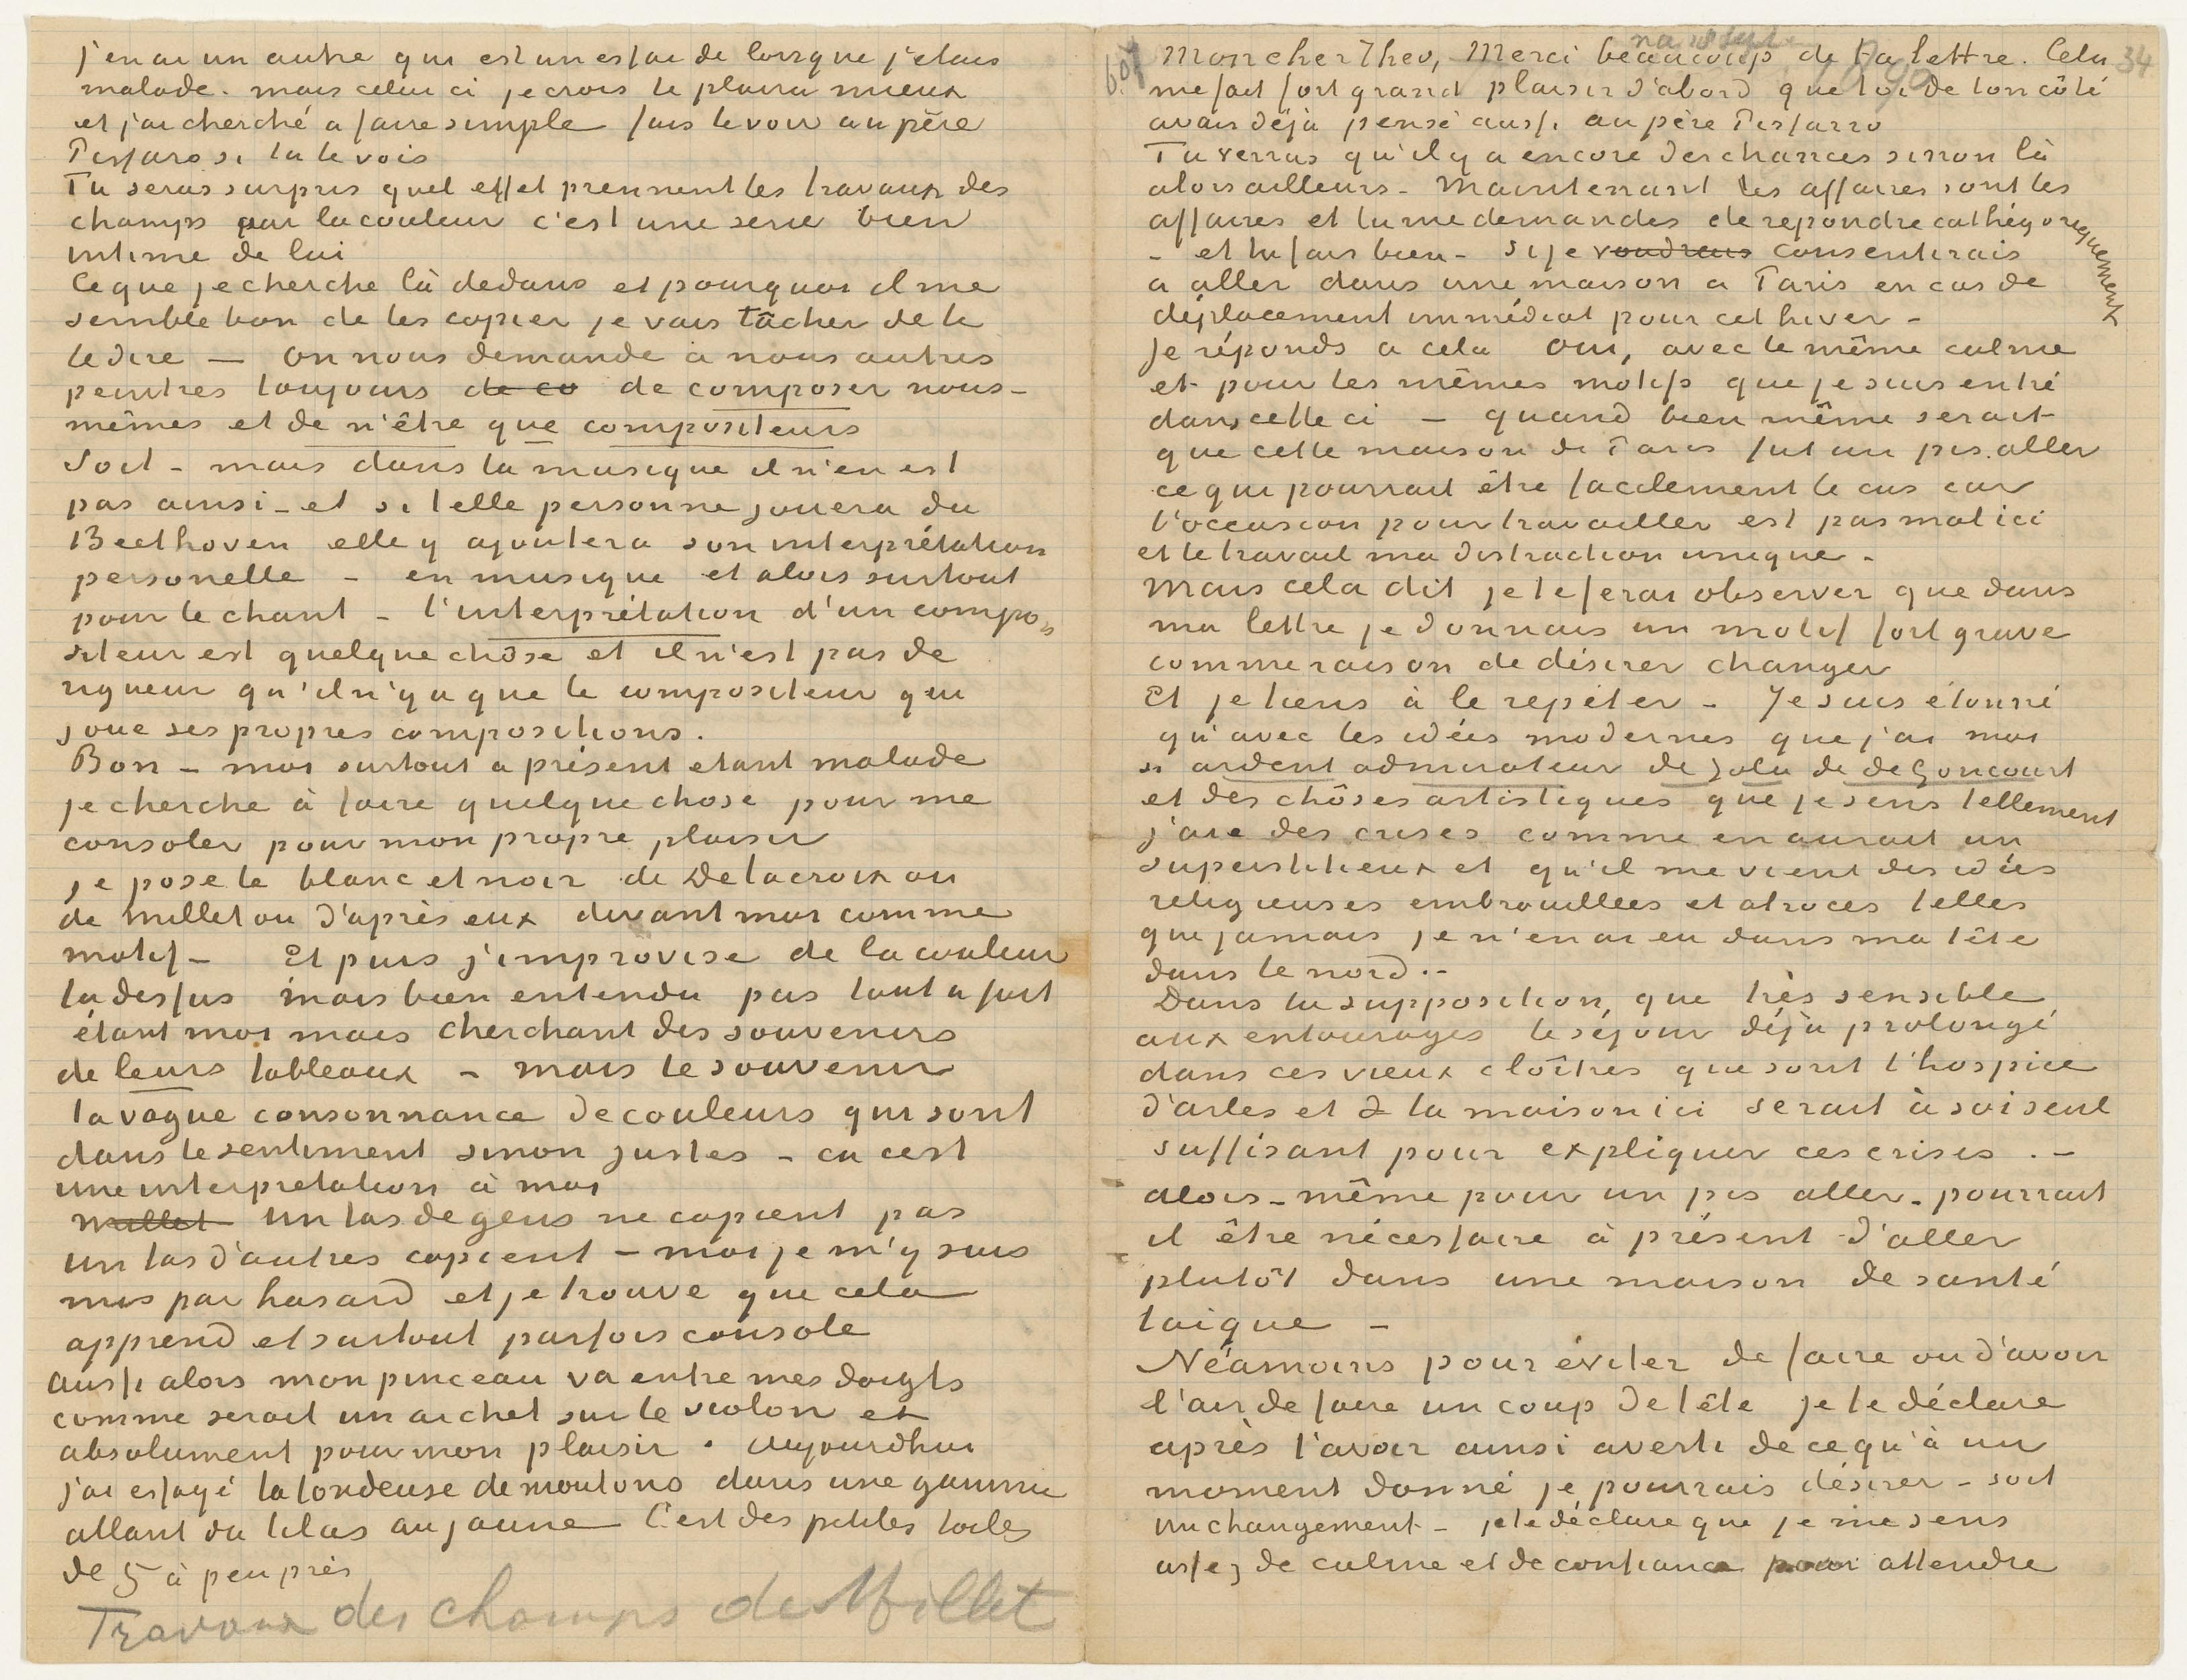 j'en ai un autre qui est un essai de lorsque j'etais
malade. mais celui ci je crois te plaira mieux
et j'ai cherché a faire simple fais le voir au père
Pissaro si tu le vois
Tu seras surpris quel effet prennent les travaux des
champs par la couleur c'est une serie bien
intime de lui
Ce que je cherche là dedans et pourquoi il me
semble bon de les copier je vais tâcher de te
le dire — On nous demande à nous autres
peintres toujours de co de composer nous-
mêmes et de n'être que compositeurs
Soit - mais dans la musique il n'en est
pas ainsi - et si telle personne jouera du
Beethoven elle y ajoutera son interprétation
personelle - en musique et alors surtout
pour le chant - l'interprétation d'un compo=
siteur est quelque chôse et il n'est pas de
rigueur qu'il n'y a que le compositeur qui
joue ses propres compositions.
Bon - moi surtout a présent etant malade
je cherche à faire quelque chose pour me
consoler pour mon propre plaisir
je pose le blanc et noir de Delacroix ou
de Millet ou d'après eux devant moi comme
motif - Et puis j'improvise de la couleur
la dessus mais bien entendu pas tout a fait
étant moi mais cherchant des souvenirs
de leurs tableaux - mais le souvenir
la vague consonnance de couleurs qui sont
dans le sentiment sinon justes - ca cest
une interpretation à moi
Millet un tas de gens ne copient pas
un tas d'autres copient - moi je m'y suis
mis par hasard et je trouve que cela
apprend et surtout parfois console
Aussi alors mon pinceau va entre mes doigts
comme serait un archet sur le violon et
absolument pour mon plaisir . Aujourdhui
j'ai essayé la tondeuse de moutons dans une gamme
allant du lilas au jaune C'est des petites toiles
de 5 à peu près
Travaux des champs de Millet
607
34
Mon cher Theo, Merci beaucoup de ta lettre. Cela
me fait fort grand plaisir d'abord que toi de ton côté
avais déjà pensé aussi au père Pissarro
Tu verras qu'il y a encore des chances sinon là
alors ailleurs - Maintenant les affaires sont les
affaires et tu me demandes de repondre cathégoriquement
- et tu fais bien - si je voudrais consentirais
a aller dans une maison a Paris en cas de
déplacement immédiat pour cet hiver -
Je réponds a cela oui, avec le même calme
et pour les mêmes motifs que je suis entré
dans celle ci — quand bien même serait
que cette maison de Paris fut un pis.aller
ce qui pourrait être facilement le cas car
l'occasion pour travailler est pas mal ici
et le travail ma distraction unique -
Mais cela dit je te ferai observer que dans
ma lettre je donnais un motif fort grave
comme raison de désirer changer
Et je tiens à le repéter - Je suis étonné
qu'avec les idées modernes que j'ai moi
si ardent admirateur de Zola de de Goncourt
et des chôses artistiques que je sens tellement
j'aie des crises comme en aurait un
superstitieux et qu'il me vient des idées
religieuses embrouillées et atroces telles
que jamais je n'en ai eu dans ma tête
dans le nord.-
Dans la supposition, que très sensible
aux entourages le séjour déjà prolongé
dans ces vieux cloîtres que sont l'hospice
d'arles et & la maison ici serait à soi seul
suffisant pour expliquer ces crises .-
alors - même pour un pis aller - pourrait
il être nécessaire à présent d'aller
plutôt dans une maison de santé
laique -
Néamoins pour éviter de faire ou d'avoir
l'air de faire un coup de tête je te déclare
après t'avoir ainsi averti de ce qu'à un
moment donné je pourrais désirer - soit
un changement - je te déclare que je me sens
assez de calme et de confiance pour attendre